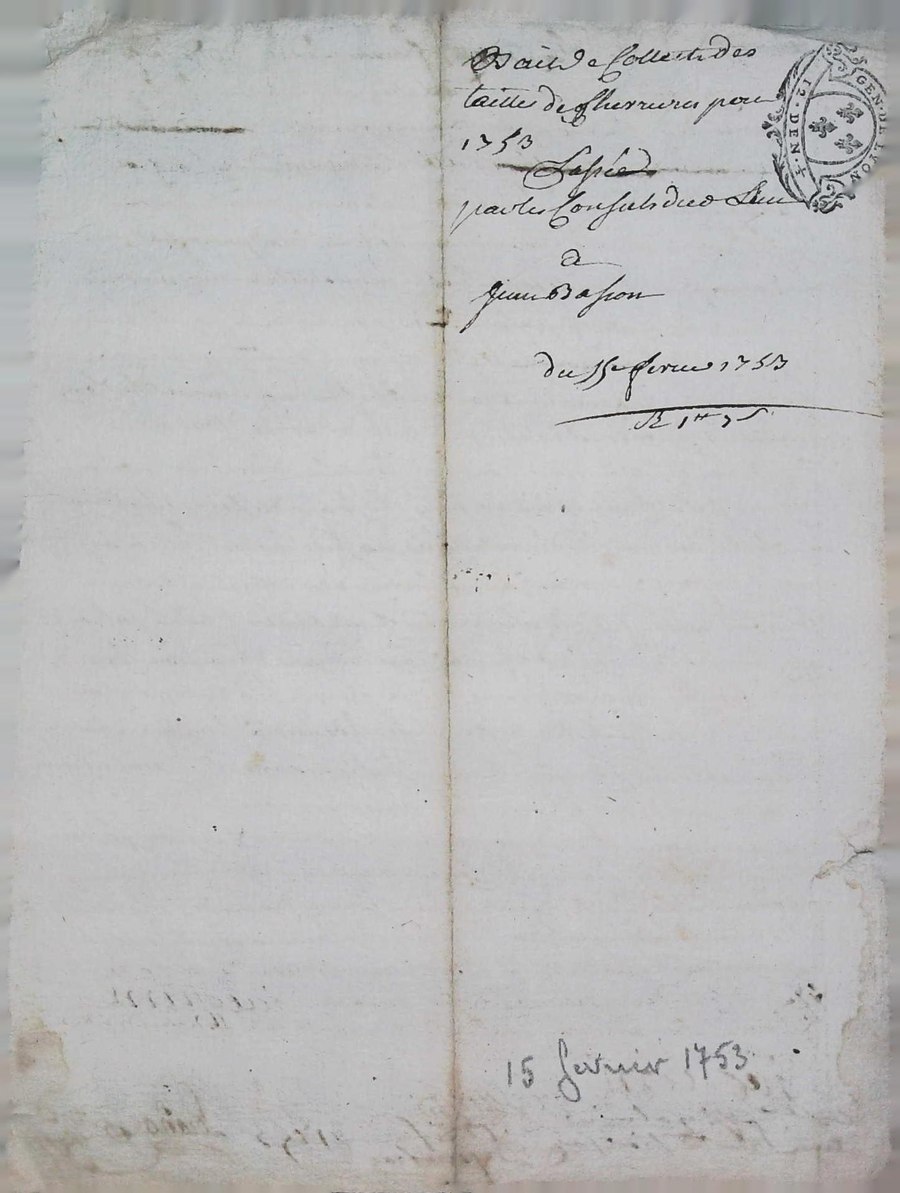 Bail de Collecte des
tailles de Cherrieres pour
1753
Passée
par les Consuls dud. Lieu
a
Jean Basson
du 15e fevrier 1753
R 1tt 7s
GEN. DE LYON
12. DEN. 4
15 fevrier 1753